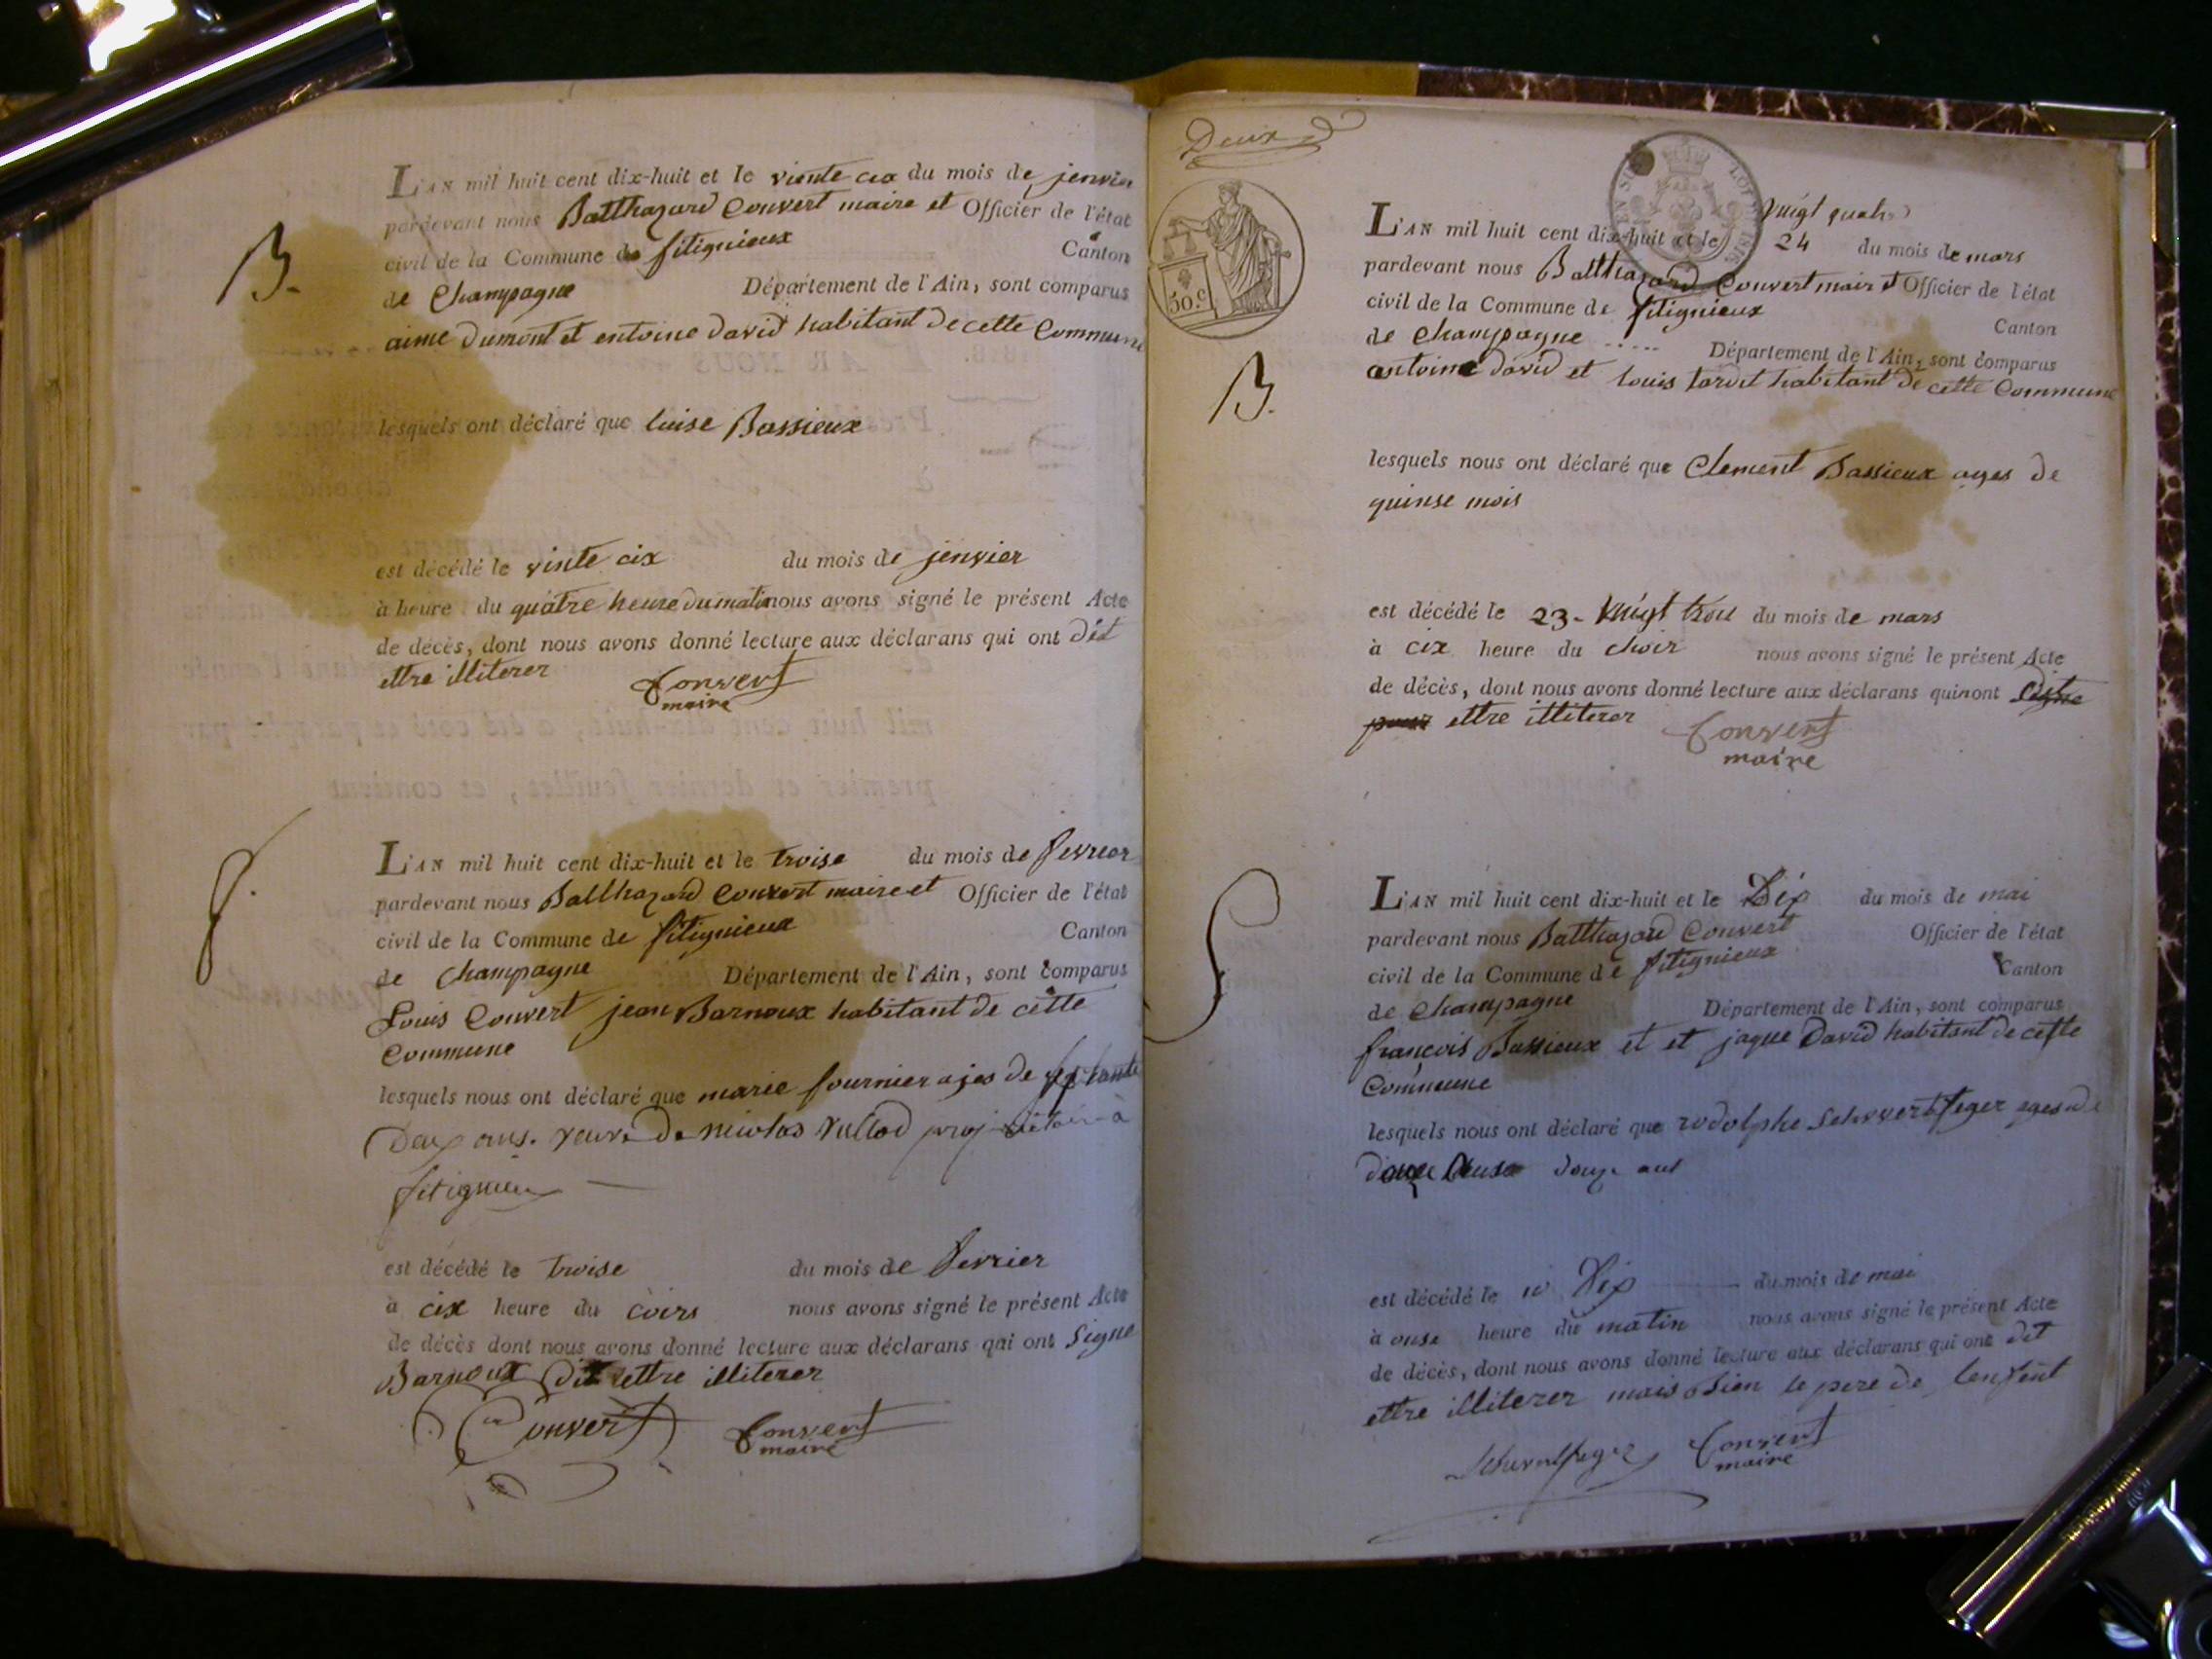 L'AN mil huit cent dix-huit et le vinte cix du mois de jenvier
pardevant nous Balthazard Convert maire et Officier de l'état
civil de la Commune de fitignieux Canton
de Champagne Département de l'Ain, sont comparus
B.
aime Dumont et entoine david habitant de cette Commune
lesquels ont déclaré que luise Bassieux
est décédé le vinte cix du mois de jenvier
à heure du quatre heure du matin nous avons signé le présent Acte
de décès, dont nous avons donné lecture aux déclarans qui ont dit
ettre illiterer
Convert
maire
L'AN mil huit cent dix-huit et le troise du mois de fevrier
f.
pardevant nous Balthazard Convert maire et Officier de l'état
civil de la Commune de fitignieux Canton
de Champagne Département de l'Ain, sont comparus
Louis Convert jean Barnoux habitant de cette
Commune
lesquels nous ont déclaré que marie fournier ajes de septante
Deux ans. veuve de nicolas vullod propriétaire à
fitignieu
est décédé le troise du mois de fevrier
à cix heure du coirs nous avons signé le présent Acte
de décès dont nous avons donné lecture aux déclarans qui ont Signe
Barnoux dit ettre illiterer
Convert
Convert
maire
Deux
50.c
vuigt quatre
L'AN mil huit cent dix-huit et le 24 du mois de mars
pardevant nous Balthazard Convert mair et Officier de l'état
civil de la Commune de fitignieux
Canton
de Champagne ..... Département de l'Ain, sont comparus
B.
antoine david et louis tardit habitant de cette Commune
lesquels nous ont déclaré que Clement Bassieux ages de
quinse mois
est décédé le 23. vuigt trois du mois de mars
à cix heure du choir nous avons signé le présent Acte
de décès, dont nous avons donné lecture aux déclarans qui nont signe
pour ettre illiterer
Convert
maire
L'AN mil huit cent dix-huit et le Dix du mois de mai
S
pardevant nous Balthazard Convert Officier de l'état
civil de la Commune de fitignieux
Canton
de Champagne Département de l'Ain, sont comparus
francois Bassieux et et jaque David habitant de cette
Commune
lesquels nous ont déclaré que rodolphe ages de
douze ans
est décédé le 10 Dix du mois de mai
à onse heure du matin nous avons signé le présent Acte
de décès, dont nous avons donné lecture aux déclarans qui ont dit
ettre illiterer mais bien le pere de lenfent
Convert
maire